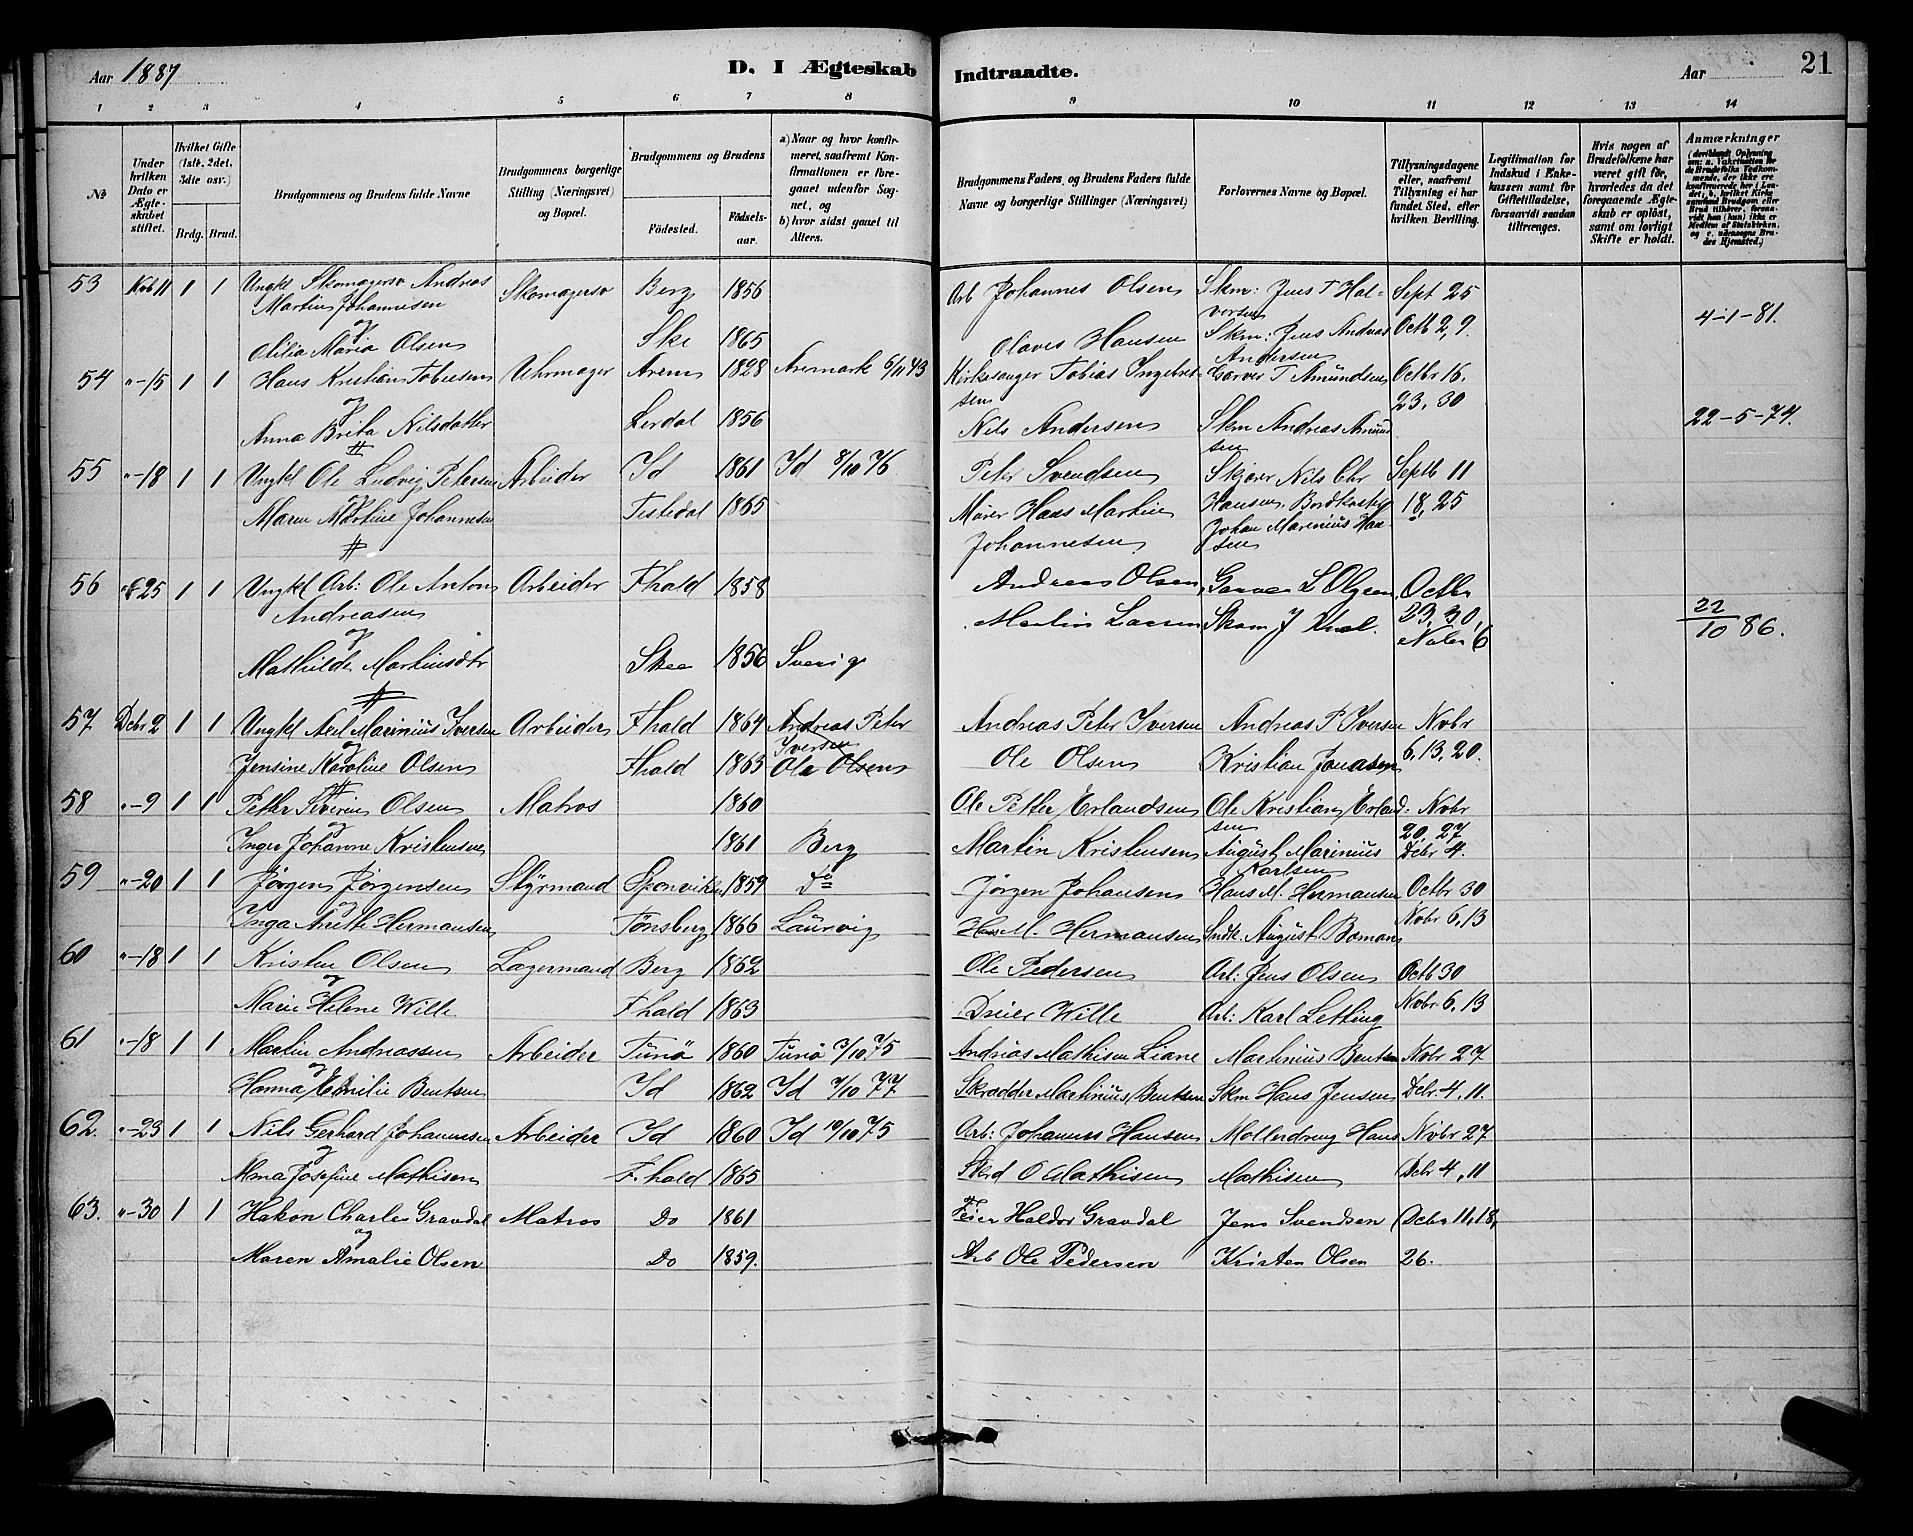 Aar 1887
D. I Ægteskab Indtraadte.
Aar
21
1 2 3 4 5 6 7 8 9 10 11 12 13 14
No
Under hvilken Dato er Ægteskabet stiftet.
Hvilket Gifte (1ste, 2det, 3die osv.)
Brdg. Brud.
Brudgommens og Brudens fulde Navne
Brudgommens borgerlige Stilling (Næringsvei) og Bopæl.
Brudgommens og Brudens
Fødested.
Fødselsaar.
a) Naar og hvor konfirmeret, saafremt Konfirmationen er foregaaet udenfor Sognet, og
b) hvor sidst gaaet til Alters.
Brudgommens Faders og Brudens Faders fulde Navne og borgerlige Stillinger (Næringsvei)
Forlovernes Navne og Bopæl.
Tillysningsdagene eller, saafremt Tillysning ei har fundet Sted, efter hvilken Bevilling.
Legitimation for Indskud i Enkekassen samt for Giftetilladelse, forsaavidt saadan tiltrænges.
Hvis nogen af Brudefolkene har været gift før, hvorledes da det foregaaende Ægteskab er opløst, samt om lovligt Skifte er holdt.
Anmærkninger
53 Nvb 11 1 1 Ungkl Skomagersv Andreas Skomagersv Berg 1856 Arb Johannes Olsen Skm: Jens T Hal- Sept 25
Martin Johannesen vorsen 4-1-81.
og Octb 2, 9.
Maria Olsen Ske 1865 Olaves Hansen Skm: Jens Andreas Andersen
54 "-15 1 1 Hans Kristian Tobiesen Uhrmager Arem 1828 Aremark 6/11 43 Kirkesanger Tobias Ingebret- T Amundsen Octbr 16.
og sen 23, 30
Anna Brita Nilsdatter Lerdal 1856 Nils Andersen Skm Andreas Amund 22-5-74.
sen
55 "-18 1 1 Ungkl Ole Ludvig Petersen Arbeider Id 1861 Id 8/10 76 Peter Svendsen Nils Chr Septb 11
og
Maren Martine Johannesen Tistedal 1865 Murer Hans Martin Hansen, 18, 25
Johannesen Johan Marenius Han
sen
56 "-25 1 1 Ungkl Arb: Ole Anton Arbeider Fhald 1858 Andreas Olsen Garver L Olsen Octbr
Andreasen Martin Larsen Skom J 23, 30, 22/10 86.
og Nvbr 6
Mathilde Martinsdtr Skee 1856 Sverig
57 Dcbr 2 1 1 Ungkl Axel Marinius Iversen Arbeider Fhald 1864 Andreas Peter Andreas Peter Iversen Andreas P Iversen Nvbr
og Iversen 6, 13, 20.
Jensine Karoline Olsen Fhald 1863 Ole Olsen Ole Olsen Kristian Jonasen
58 "-9 1 1 Petter Severin Olsen Matros 1860 Ole Petter Erlandsen Ole Kristian Erland- Nvbr
og sen 20, 27
Inger Johanne Kristensen 1861 Berg Martin Kristensen August Marinius Dcbr 4.
Karlsen
59 "-20 1 1 Jørgen Jørgensen Styrmand Sponviken 1859 Do Jørgen Johansen Hans M. Hermansen Octbr 30
og
Inga Anette Hermansen Tønsberg 1866 Laurvig Hans M. Hermansen August Bomans Nvbr 6, 13
60 "-18 1 1 Kristen Olsen Lagermand Berg 1862 Ole Pedersen Arb: Jens Olsen Octb 30
og
Marie Helene Wille Fhald 1863 Dreier Wille Arb: Karl Letting Nvbr 6, 13
61 "-18 1 1 Martin Andreassen Arbeider Tunø 1860 Tunø 3/10 75 Andreas Mathisen Liane Martinius Bentsen Nvbr 27
og
Hanna Emilie Bentsen Id 1862 Id 7/10 77 Skrædder Martinius Bentsen Skm Hans Jensen Dcbr 4, 11.
62. "-23 1 1 Nils Gerhard Johannesen Arbeider Id 1860 Id 10/10 75 Arb: Johannes Hansen Møllerdreng Hans Nvbr 27
og
Josefine Mathisen F.hald 1865 O Mathisen Mathisen Dcbr 4, 11
63. "-30 1 1 Hakon Charles Gravdal Matros Do 1861 Feier Haldor Gravdal Jens Svendsen Dcbr 11, 18,
og
Maren Amalie Olsen Do 1859. Arb Ole Pedersen Kristen Olsen 26.